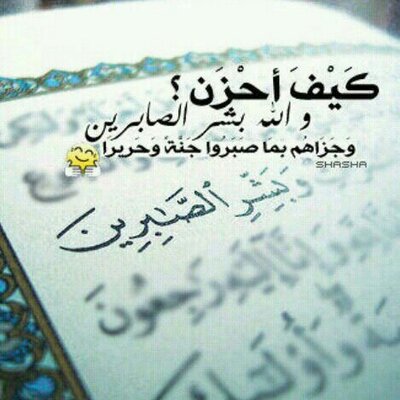 كَيْفَ أحْزَن ؟
والله بشر الصابرين
وَجَزَاهُم بمَا صَبَرُوا جَنَّةً وَحَريرَا
SHASHA
وَبَشِّرِ ٱلصَّٰبِرِينَ
إِلَيْهِ رَٰجِعُونَ